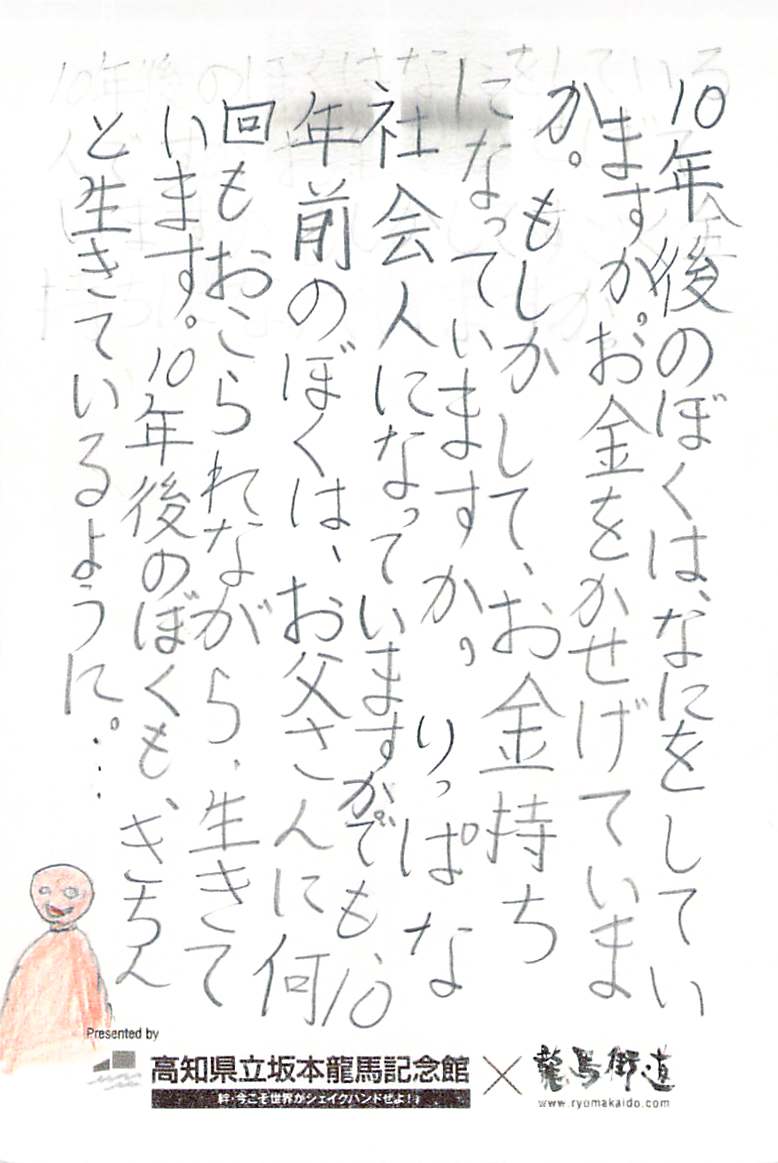 10年後のぼくは、なにをしてい
ますか。お金をかせげていま
か。もしかして、お金持ち
になっていますか。りっぱな
社会人になっていますか。でも、10
年前のぼくは、お父さんに何
回もおこられながら、生きて
います。10年後のぼくも、きちん
と生きているように。...
Presented by
高知県立坂本龍馬記念館 × 龍馬街道
絆・今こそ世界がシェイクハンドぜよ！
www.ryomakaido.com